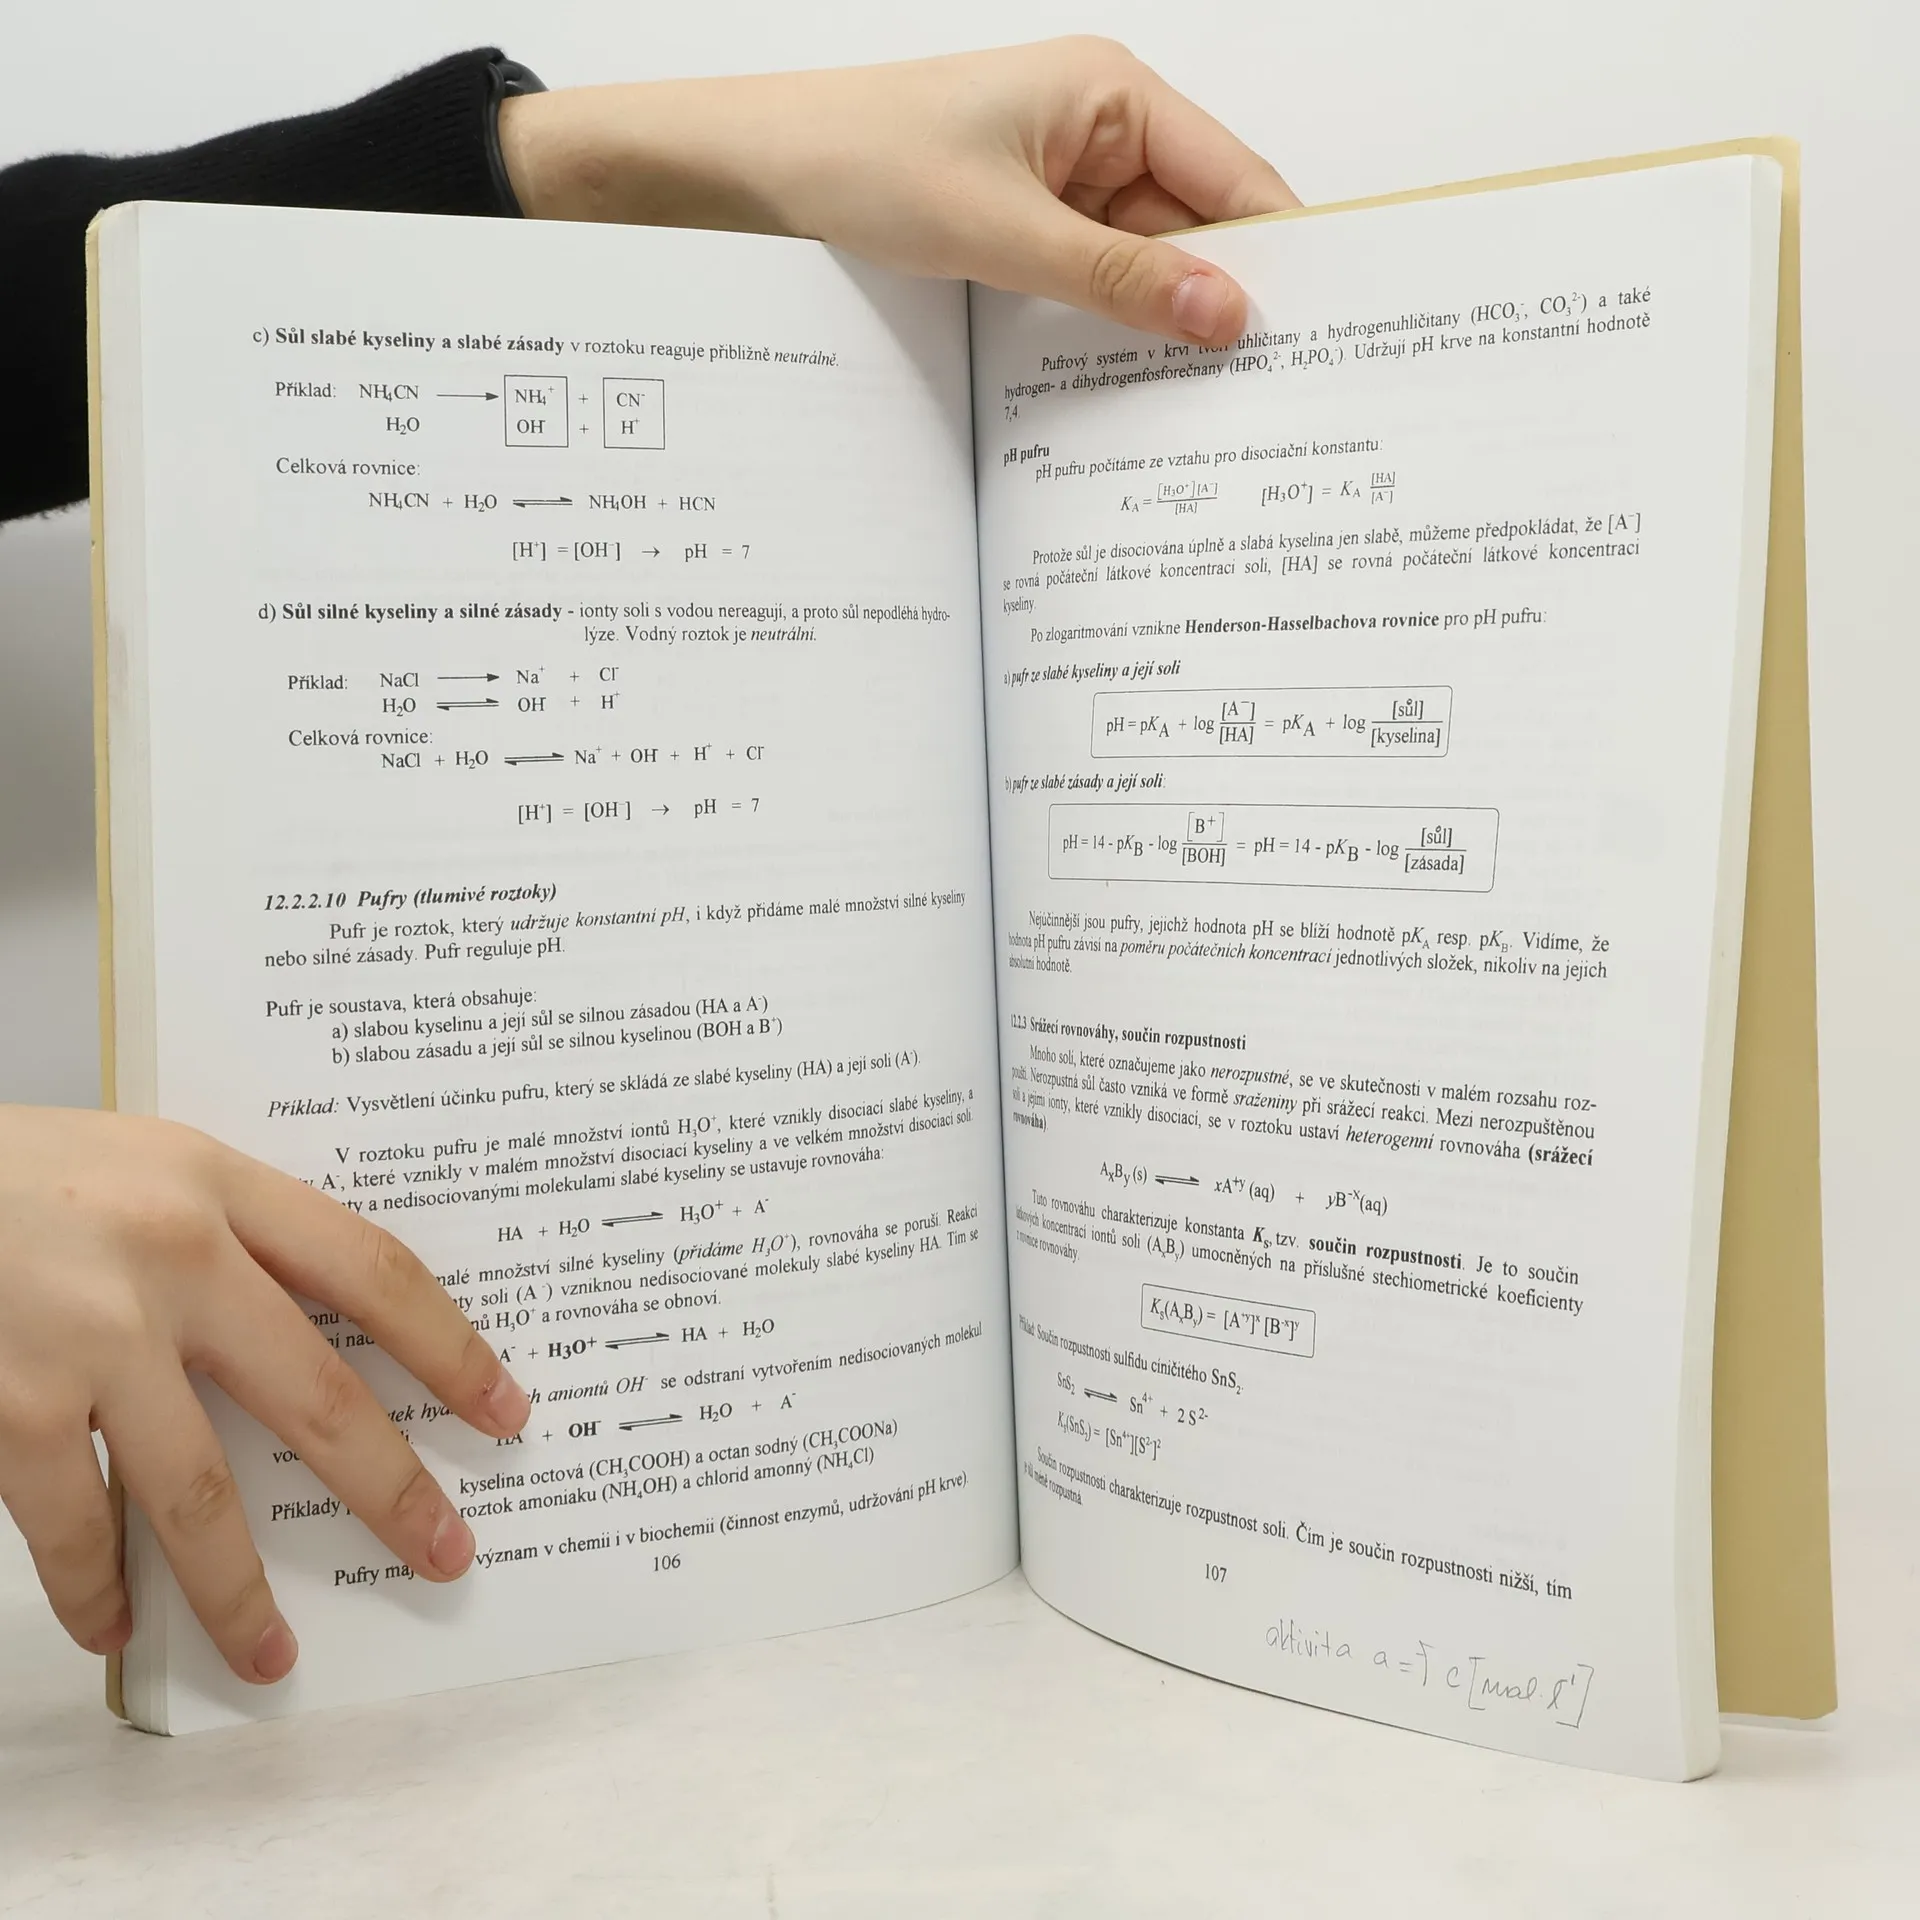 c) Sůl slabé kyseliny a slabé zásady v roztoku reaguje přibližně neutrálně.
Příklad: NH₄CN ⟶ NH₄⁺ + CN⁻
H₂O OH⁻ + H⁺
Celková rovnice:
NH₄CN + H₂O ⇌ NH₄OH + HCN
[H⁺] = [OH⁻] → pH = 7
d) Sůl silné kyseliny a silné zásady - ionty soli s vodou nereagují, a proto sůl nepodléhá hydro-
lýze. Vodný roztok je neutrální.
Příklad: NaCl ⟶ Na⁺ + Cl⁻
H₂O ⇌ OH⁻ + H⁺
Celková rovnice:
NaCl + H₂O ⇌ Na⁺ + OH⁻ + H⁺ + Cl⁻
[H⁺] = [OH⁻] → pH = 7
12.2.2.10 Pufry (tlumivé roztoky)
Pufr je roztok, který udržuje konstantní pH, i když přidáme malé množství silné kyseliny
nebo silné zásady. Pufr reguluje pH.
Pufr je soustava, která obsahuje:
a) slabou kyselinu a její sůl se silnou zásadou (HA a A⁻)
b) slabou zásadu a její sůl se silnou kyselinou (BOH a B⁺)
Příklad: Vysvětlení účinku pufru, který se skládá ze slabé kyseliny (HA) a její soli (A⁻).
V roztoku pufru je malé množství iontů H₃O⁺, které vznikly disociací slabé kyseliny, a
A⁻, které vznikly v malém množství disociací kyseliny a ve velkém množství disociací soli.
a nedisociovanými molekulami slabé kyseliny se ustavuje rovnováha:
HA + H₂O ⇌ H₃O⁺ + A⁻
malé množství silné kyseliny (přidáme H₃O⁺), rovnováha se poruší. Reakcí
soli (A⁻) vzniknou nedisociované molekuly slabé kyseliny HA. Tím se
H₃O⁺ a rovnováha se obnoví.
A⁻ + H3O+ ⇌ HA + H₂O
aniontů OH⁻ se odstraní vytvořením nedisociovaných molekul
HA + OH⁻ ⇌ H₂O + A⁻
kyselina octová (CH₃COOH) a octan sodný (CH₃COONa)
Příklady roztok amoniaku (NH₄OH) a chlorid amonný (NH₄Cl)
Pufry význam v chemii i v biochemii (činnost enzymů, udržování pH krve).
106
Pufrový systém v krvi uhličitany a hydrogenuhličitany (HCO₃⁻, CO₃²⁻) a také
hydrogen- a dihydrogenfosforečnany (HPO₄²⁻, H₂PO₄⁻). Udržují pH krve na konstantní hodnotě
7,4.
pH pufru
pH pufru počítáme ze vztahu pro disociační konstantu:
K_A = [H₃O⁺][A⁻] / [HA] [H₃O⁺] = K_A [HA] / [A⁻]
Protože sůl je disociována úplně a slabá kyselina jen slabě, můžeme předpokládat, že [A⁻]
se rovná počáteční látkové koncentraci soli, [HA] se rovná počáteční látkové koncentraci
kyseliny.
Po zlogaritmování vznikne Henderson-Hasselbachova rovnice pro pH pufru:
a) pufr ze slabé kyseliny a její soli
pH = pK_A + log [A⁻] / [HA] = pK_A + log [sůl] / [kyselina]
b) pufr ze slabé zásady a její soli:
pH = 14 - pK_B - log [B⁺] / [BOH] = pH = 14 - pK_B - log [sůl] / [zásada]
Nejúčinnější jsou pufry, jejichž hodnota pH se blíží hodnotě pK_A resp. pK_B. Vidíme, že
hodnota pH pufru závisí na poměru počátečních koncentrací jednotlivých složek, nikoliv na jejich
absolutní hodnotě.
12.2.3 Srážecí rovnováhy, součin rozpustnosti
Mnoho solí, které označujeme jako nerozpustné, se ve skutečnosti v malém rozsahu roz-
pouští. Nerozpustná sůl často vzniká ve formě sraženiny při srážecí reakci. Mezi nerozpuštěnou
solí a jejími ionty, které vznikly disociací, se v roztoku ustaví heterogenní rovnováha (srážecí
rovnováha).
AₓBᵧ (s) ⇌ xA⁺ʸ (aq) + yB⁻ˣ (aq)
Tuto rovnováhu charakterizuje konstanta Kₛ, tzv. součin rozpustnosti. Je to součin
látkových koncentrací iontů soli (AₓBᵧ) umocněných na příslušné stechiometrické koeficienty
z rovnice rovnováhy.
Kₛ(AₓBᵧ) = [A⁺ʸ]ˣ [B⁻ˣ]ʸ
Příklad: Součin rozpustnosti sulfidu ciničitého SnS₂.
SnS₂ ⇌ Sn⁴⁺ + 2 S²⁻
Kₛ(SnS₂) = [Sn⁴⁺][S²⁻]²
Součin rozpustnosti charakterizuje rozpustnost soli. Čím je součin rozpustnosti nižší, tím
je sůl méně rozpustná.
107
aktivita a = f c [mol·l⁻¹]